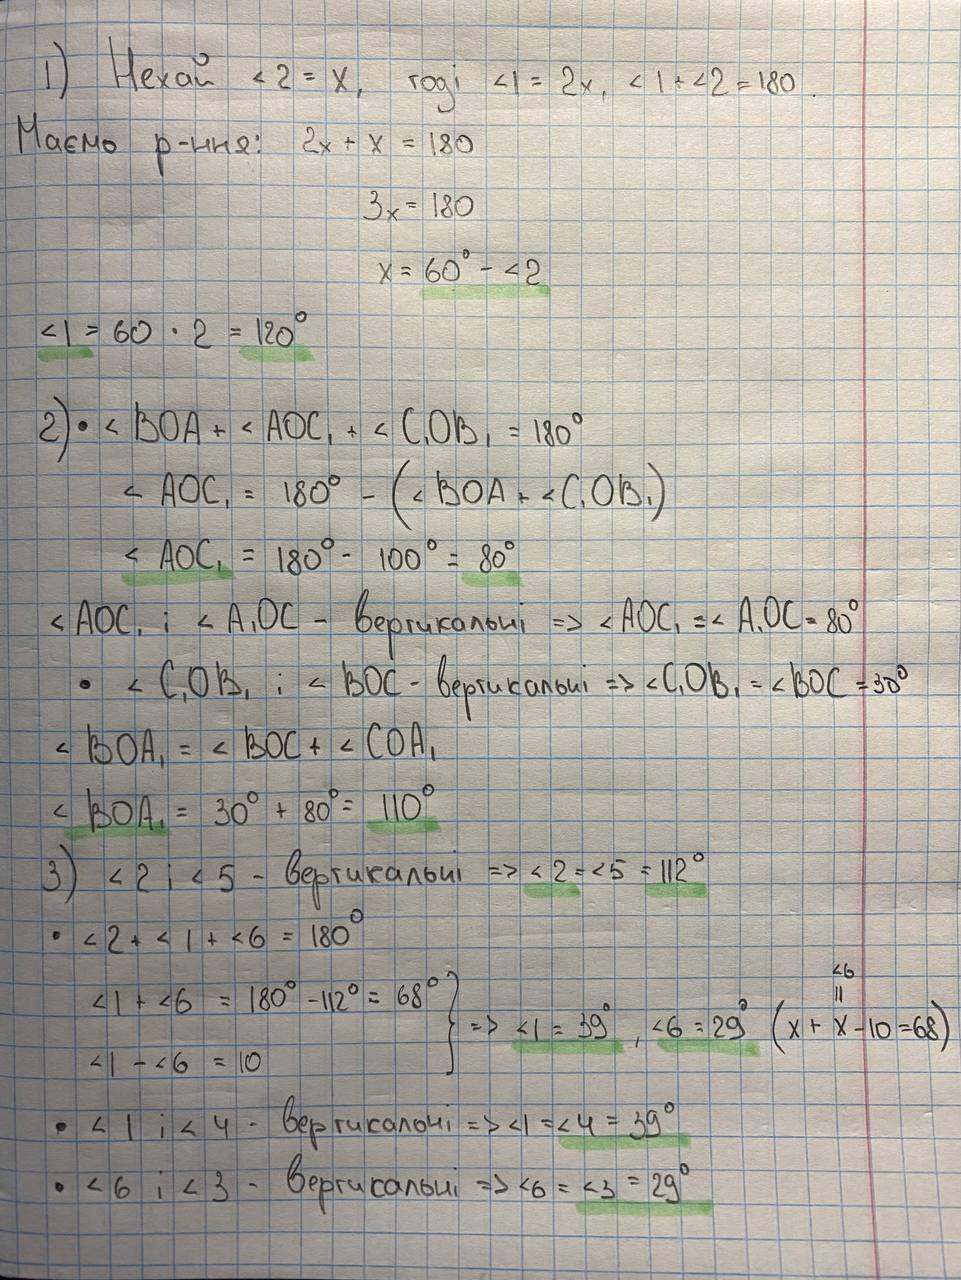 1) Нехай <2 = x, тоді <1 = 2x, <1 + <2 = 180.
Маємо р-ння: 2x + x = 180
3x = 180
x = 60° - <2
<1 = 60 · 2 = 120°
2) • < BOA + < AOC₁ + < C₁OB₁ = 180°
< AOC₁ = 180° - (< BOA + < C₁OB₁)
< AOC₁ = 180° - 100° = 80°
< AOC₁ і < A₁OC - вертикальні => < AOC₁ = < A₁OC = 80°
• < C₁OB₁ і < BOC - вертикальні => < C₁OB₁ = < BOC = 30°
< BOA₁ = < BOC + < COA₁
< BOA₁ = 30° + 80° = 110°
3) < 2 і < 5 - вертикальні => < 2 = < 5 = 112°
• <2 + < 1 + <6 = 180°
<1 + <6 = 180° - 112° = 68°
<1 - <6 = 10
} => <1 = 39°, <6 = 29° (x + x - 10 = 68)
<6
=
• < 1 і < 4 - вертикальні => <1 = <4 = 39°
• < 6 і < 3 - вертикальні => <6 = <3 = 29°